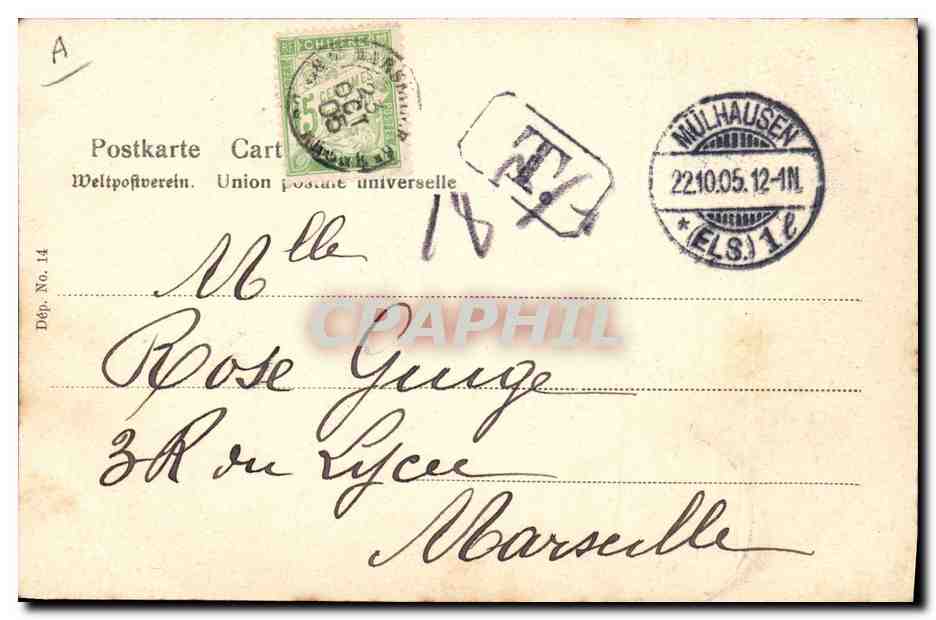 A
CHIFFRE
CENTIMES
5
MARSEILLE
23
OCT
05
T.
18
MÜLHAUSEN
22.10.05.12-1N.
* (ELS.) 1 l
Postkarte Cart
Weltpostverein. Union postale universelle
Dép. No. 14
Mlle
CPAPHIL
Rose
3 R du Lycée
Marseille